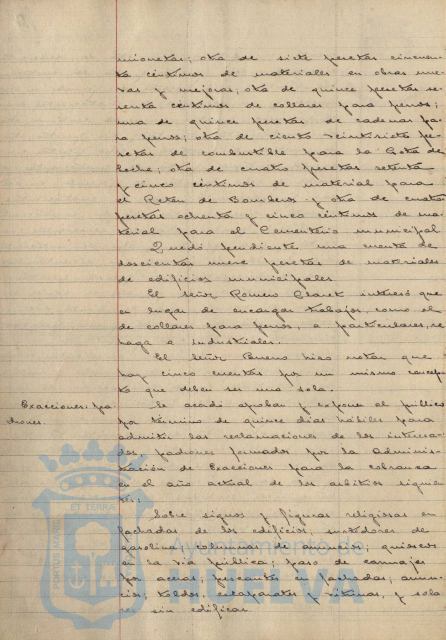 mionetas; otra de siete pesetas cincuen-
ta céntimos de materiales en obras nue-
vas y mejoras; otra de quince pesetas se-
senta céntimos de collares para perros;
una de quince pesetas de cadenas pa-
ra perros; otra de ciento veintisiete pe-
setas de combustible para la Gota de
Leche; otra de cuatro pesetas setenta
y cinco céntimos de material para
el Reten de Bomberos y otra de cuatro
pesetas ochenta y cinco céntimos de ma-
terial para el Cementerio municipal
Quedó pendiente una cuenta de
doscientas nueve pesetas de materiales
de edificios municipales.
El señor Romero Claret interesó que
en lugar de encargar trabajos, como el
de collares para perros, a particulares, se
haga a industriales.
El señor Bueno hizo notar que
hay cinco cuentas por un mismo concep-
to que deben ser una sola.
Exacciones: pa-
drones.
Se acordó aprobar y exponer al público
por término de quince días hábiles para
admitir las reclamaciones de los interesa-
dos padrones formados por la Adminis-
tración de Exacciones para la cobranza
en el año actual de los arbitrios siguien-
tes:
Sobre signos y figuras religiosas en
fachadas de los edificios; surtidores de
gasolina; columnas de anuncios; quioscos
en la vía pública; paso de carruajes
por aceras; pescantes en fachadas; anun-
cios; toldos, escaparates y vitrinas, y sola-
res sin edificar.
PORTUS MARIS
ET TERRA
Ayuntamiento de
HUELVA